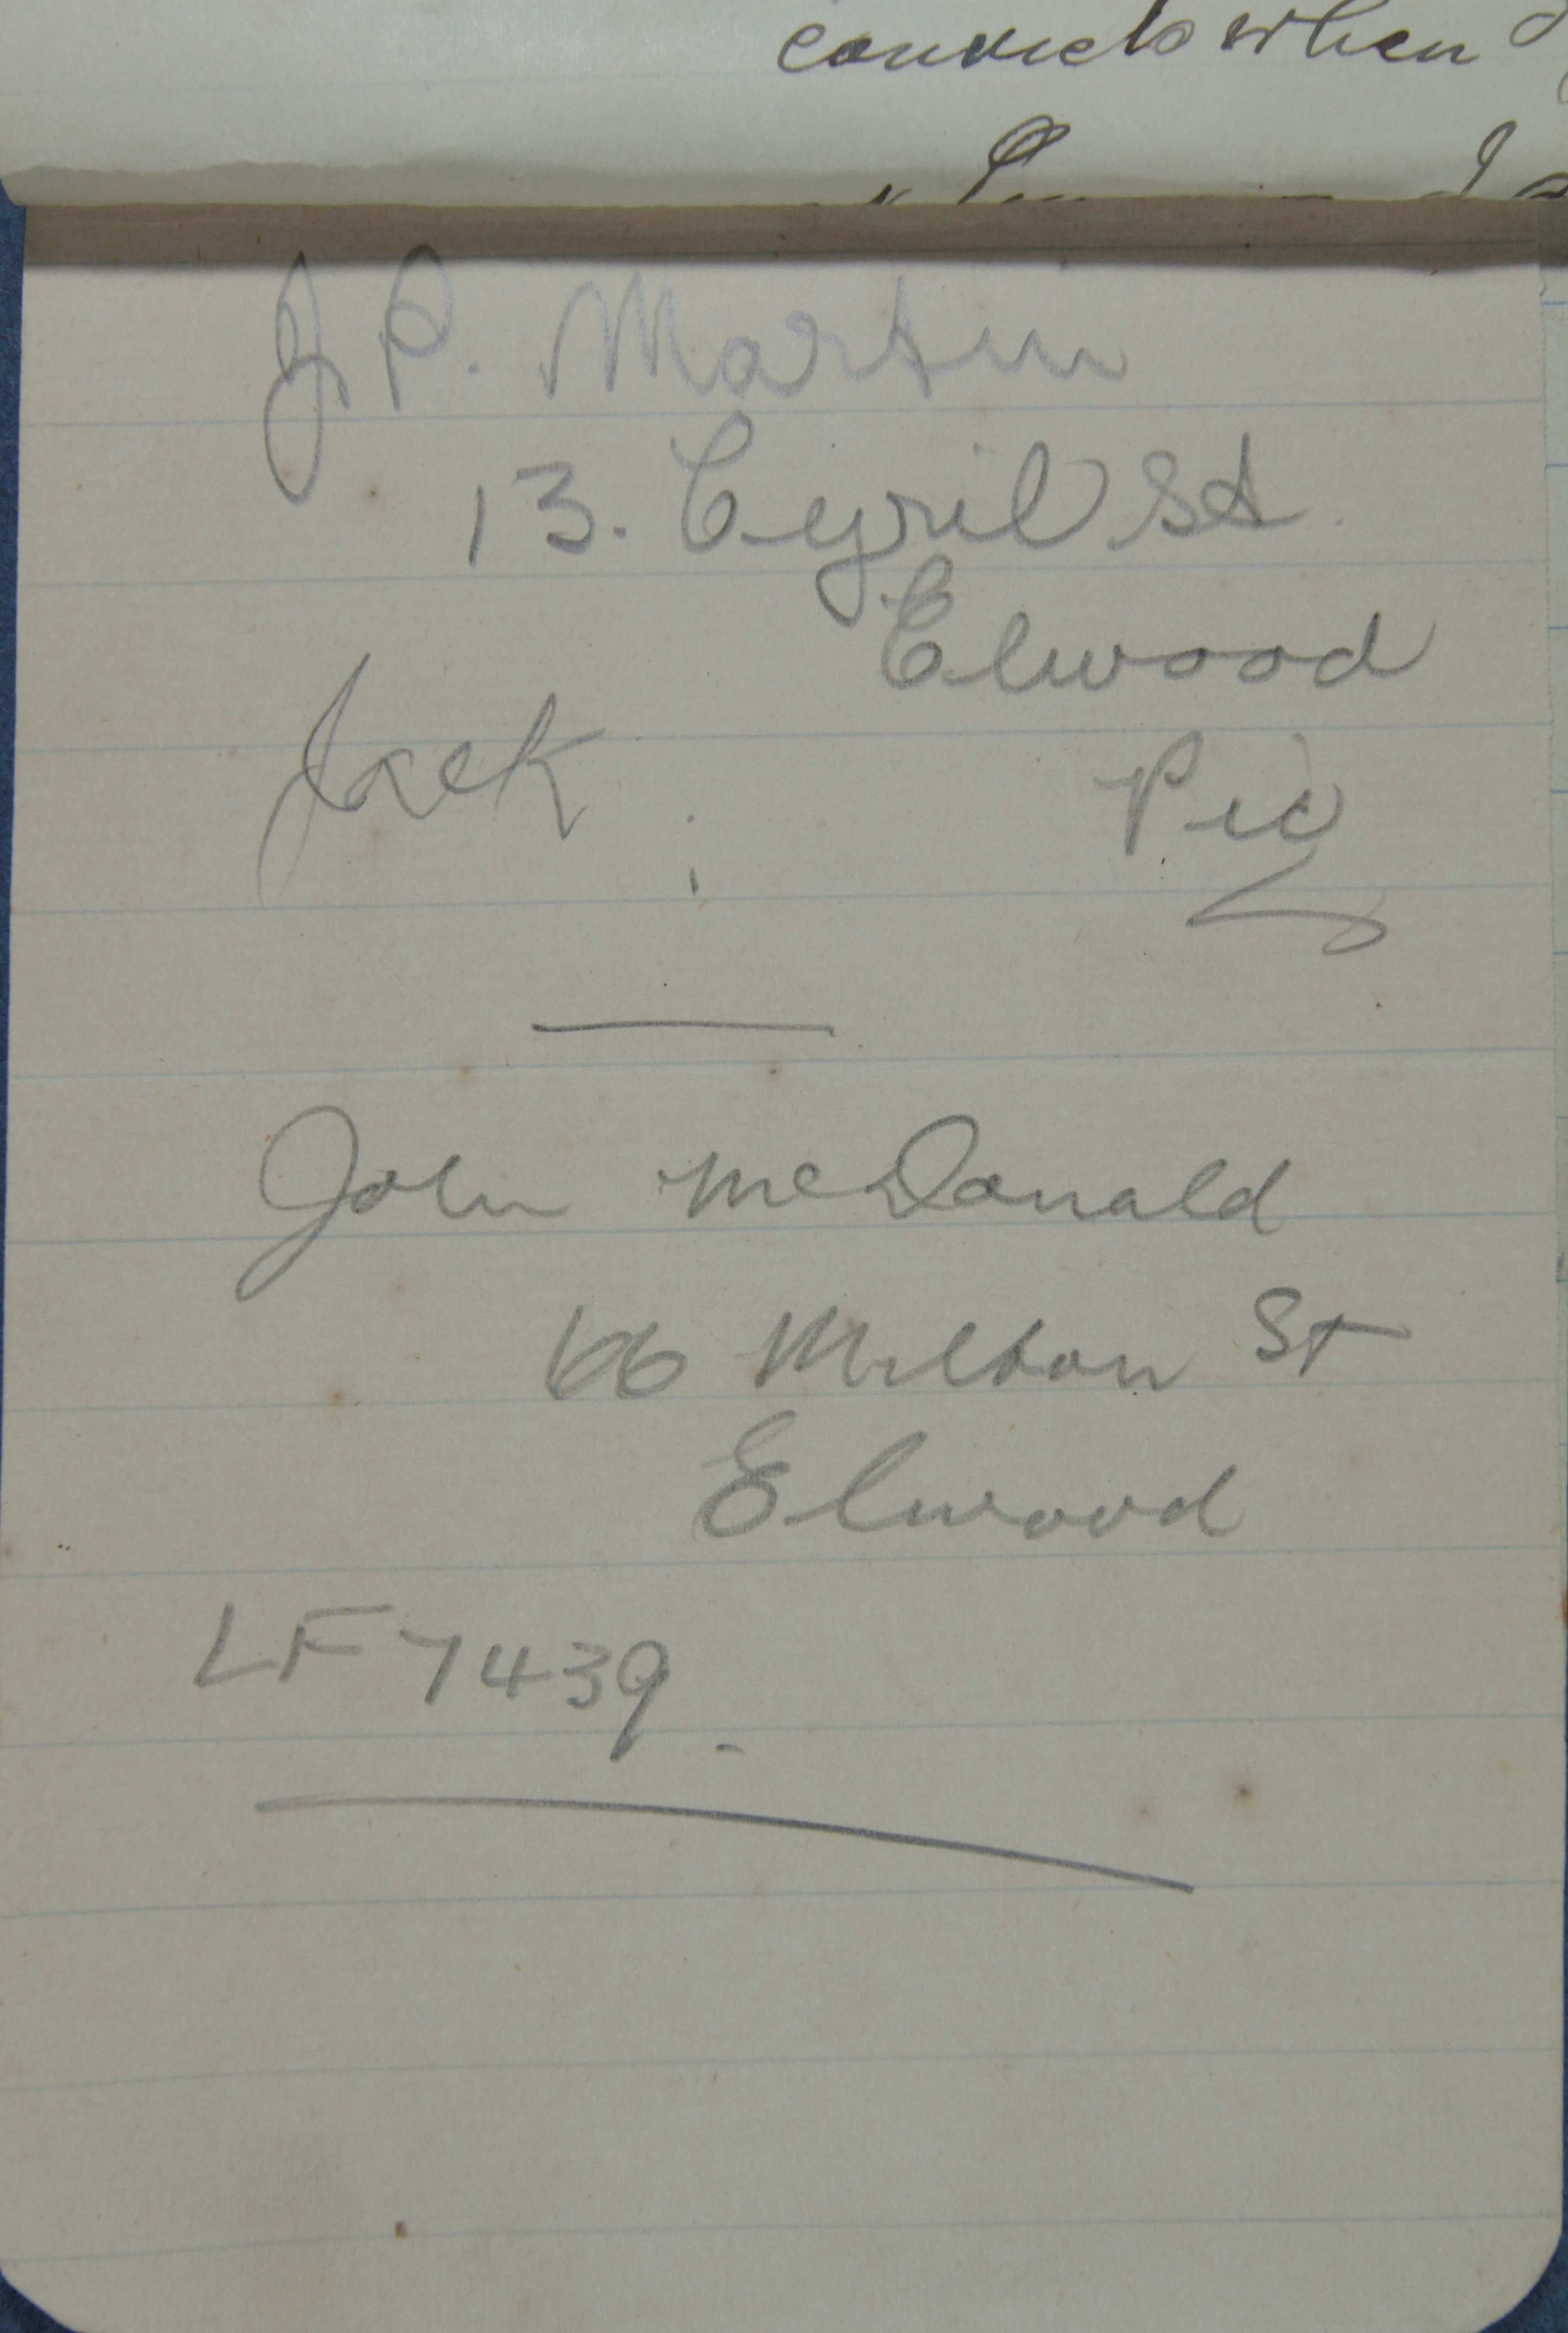 convicts when
J P. Martin
13. Cyril St
Elwood
Jack
Vic
John McDonald
66 Milton St
Elwood
LF 7439.